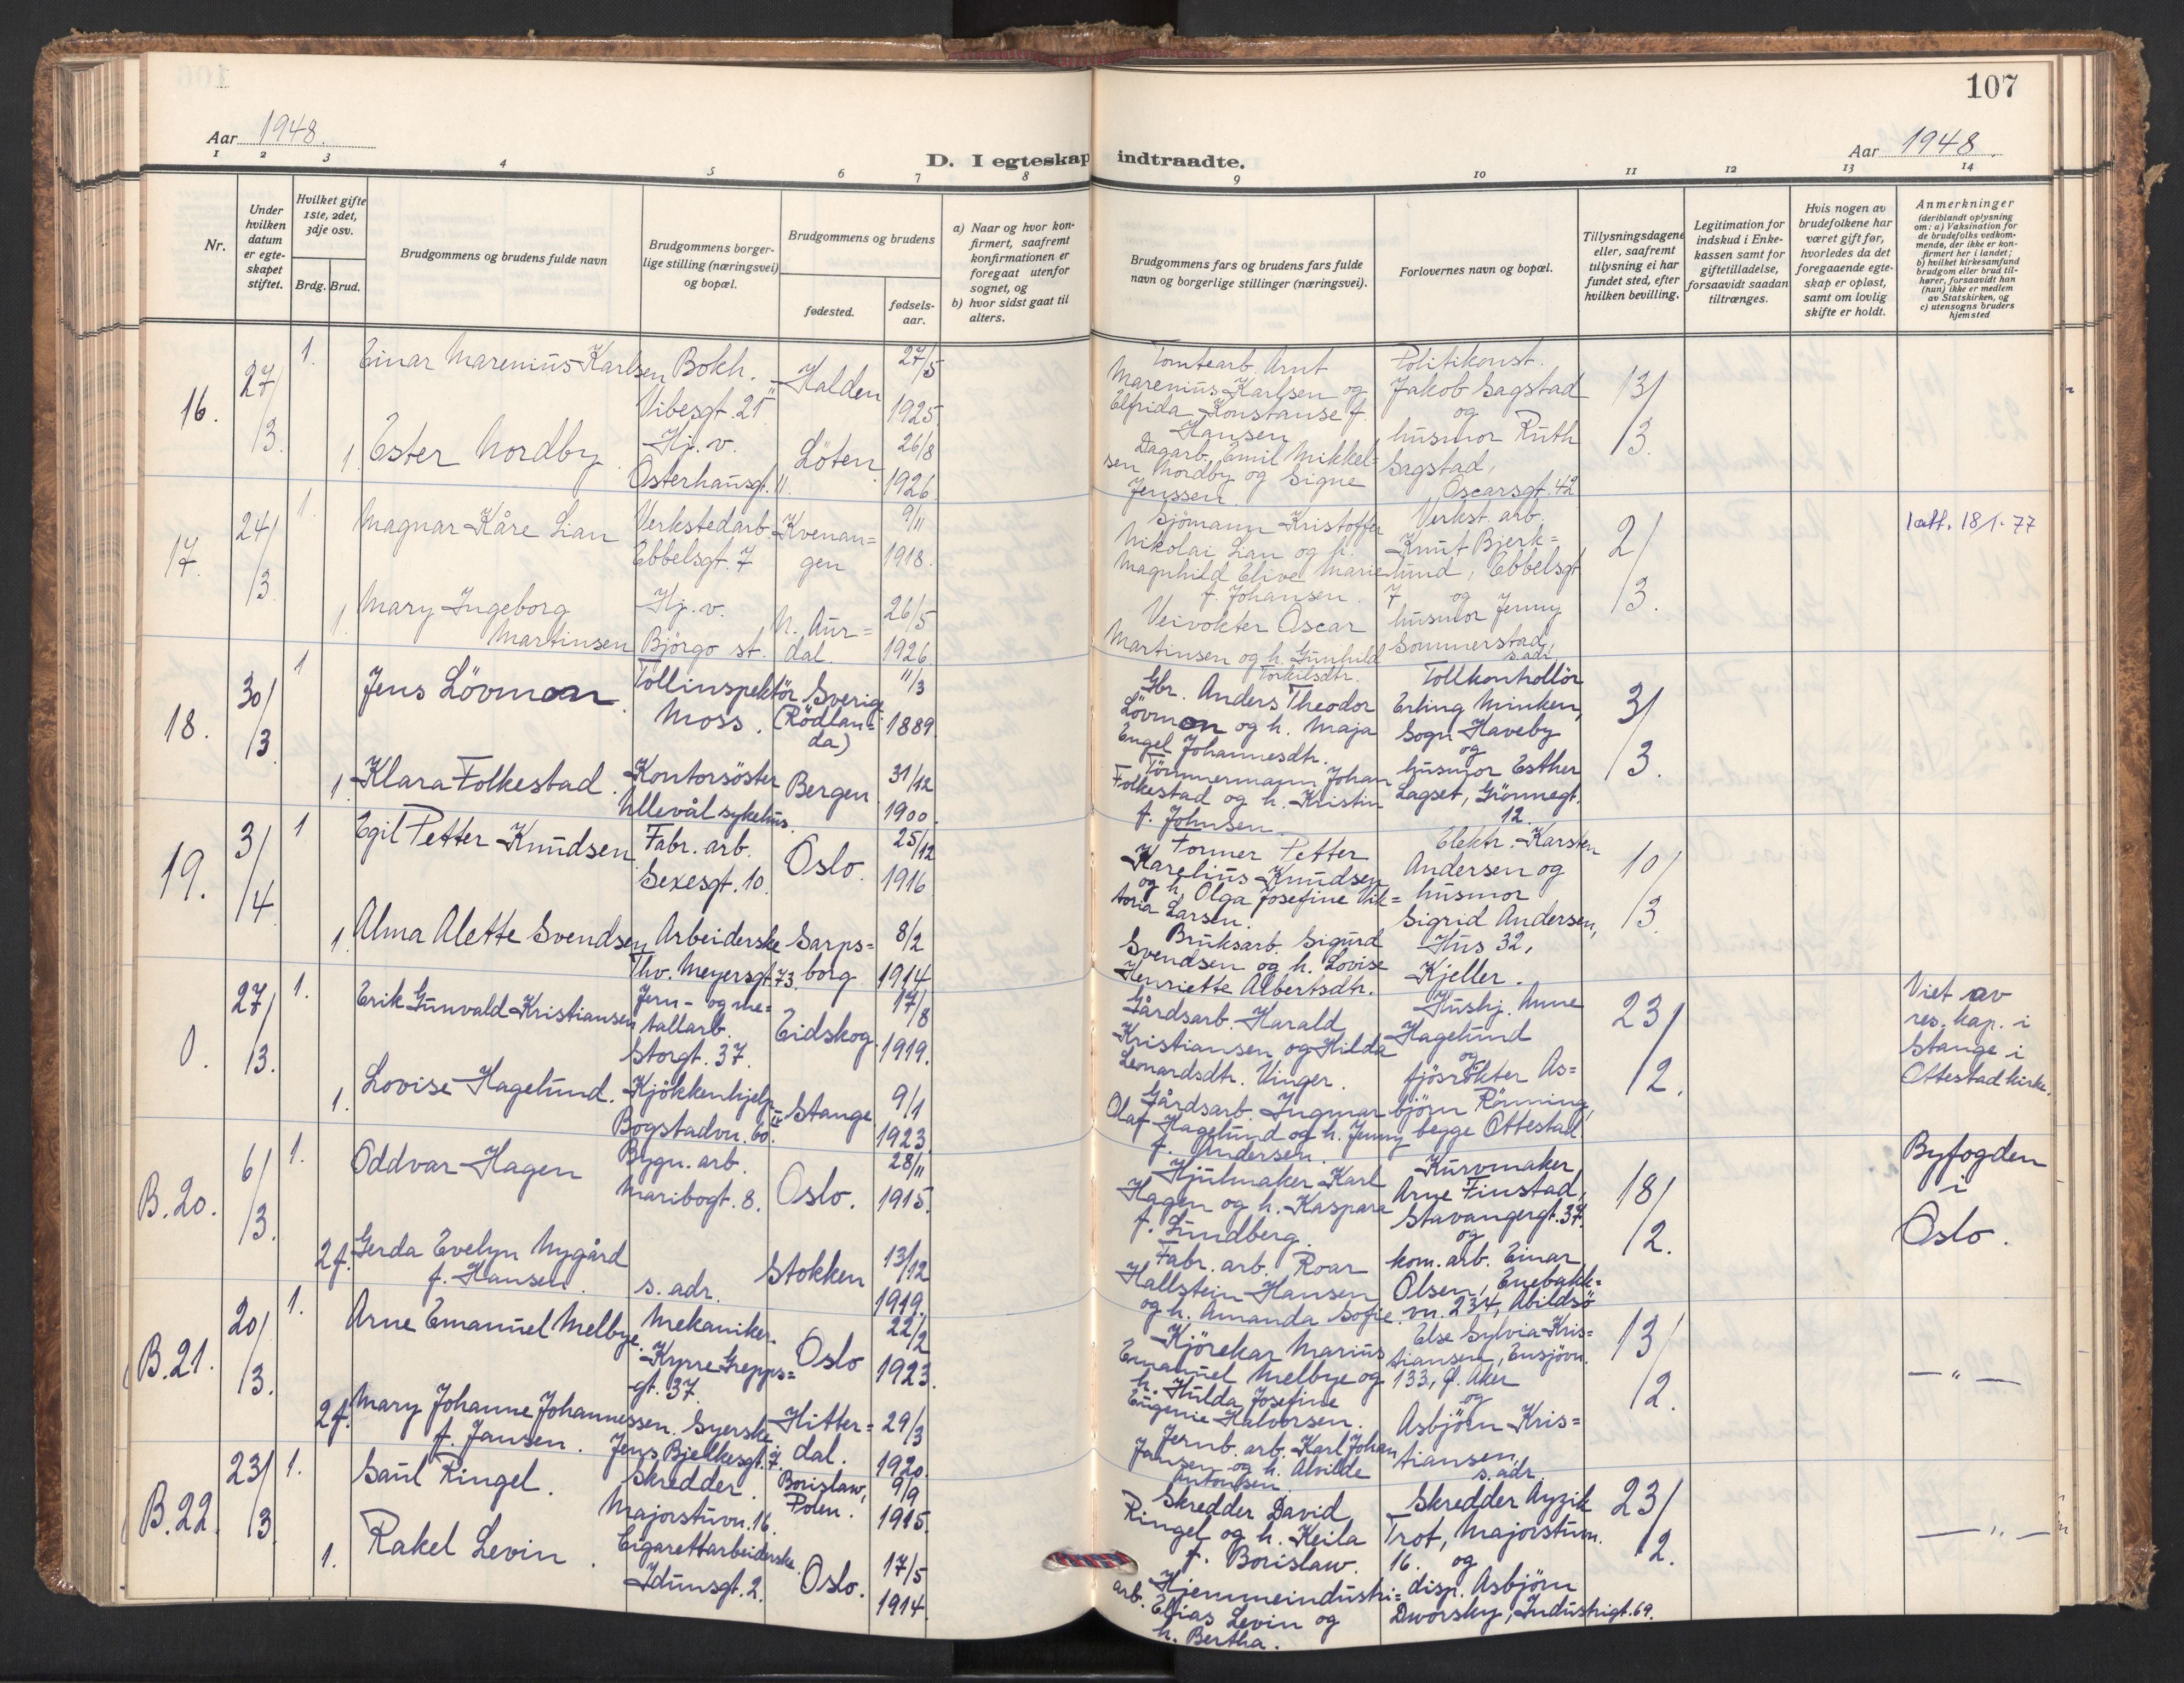 107
Aar 1948.
Aar 1948.
D. I egteskap indtraadte.
1 2 3 4 5 6 7 8 9 10 11 12 13 14
Nr.
Under hvilken datum er egteskapet stiftet.
Hvilket gifte 1ste, 2det, 3dje osv.
Brdg. Brud.
Brudgommens og brudens fulde navn
Brudgommens borgerlige stilling (næringsvei) og bopæl.
Brudgommens og brudens
fødested.
fødselsaar.
a) Naar og hvor konfirmert, saafremt konfirmationen er foregaat utenfor sognet, og
b) hvor sidst gaat til alters.
Brudgommens fars og brudens fars fulde navn og borgerlige stillinger (næringsvei).
Forlovernes navn og bopæl.
Tillysningsdagene eller, saafremt tillysning ei har fundet sted, efter hvilken bevilling.
Legitimation for indskud i Enkekassen samt for giftetilladelse, forsaavidt saadan tiltrænges.
Hvis nogen av brudefolkene har været gift før, hvorledes da det foregaaende egteskap er opløst, samt om lovlig skifte er holdt.
Anmerkninger (deriblandt oplysning om: a) Vaksination for de brudefolks vedkommende, der ikke er konfirmert her i landet; b) hvilket kirkesamfund brudgom eller brud tilhører, forsaavidt han (hun) ikke er medlem av Statskirken, og c) utensogns bruders hjemsted
16.
27/3.
1. Einar Marenius Karlsen
Bokh.
Vibesgt. 25 II
Halden
27/5 1925.
Tomtearb. Arnt
Marenius Karlsen og
Elfrida Konstanse f.
Hansen
Politikonst.
Jakob Sagstad
og
husmor Ruth
Sagstad,
Oscarsgt. 42
13/3.
1. Ester Nordby.
Hj. v.
Osterhausgt. 11.
Löten
26/8 1926.
Dagarb. Emil Mikkel=
sen Nordby og Signe
Jenssen.
17.
24/3
1. Magnar Kåre Lian
Verkstedarb.
Ebbelsgt. 7
Kvenan=
gen
9/11 1918.
Sjömann Kristoffer
Nikolai Lian og h.
Magnhild Elive Marie
f. Johansen.
Verkst. arb.
Knut Bjerk=
lund, Ebbelsgt
7 og
husmor Jenny
Sommerstad,
s. adr.
2/3.
1 att. 18/1-77
1 Mary Ingeborg
Martinsen
Hj. v.
Björgo st.
N. Aur=
dal.
26/5 1926.
Veivokter Oscar
Martinsen og h. Gunhild
Torkilsdtr.
18.
30/3
1 Jens Lövmon.
Tollinspektör
Moss.
Sverige
(Rödlan=
da)
11/3 1889.
Gbr. Anders Theodor
Lövmon og h. Maja
Engel Johannesdtr.
Tollkontrollör
Erling Minken,
Sogn Haveby
og
husmor Esther
Lagset, Grönnegt.
12.
3/3.
1 Klara Folkestad.
Kontorsöster
Ullevål sykehus.
Bergen
31/12 1900.
Tömmermann Johan
Folkestad og h. Kristin
f. Johnsen.
19.
3/4
1 Egil Petter Knudsen
Fabr. arb.
Sexesgt. 10.
Oslo.
25/12 1916
Former Petter
Karelius Knudsen
og h. Olga Josefine Vik=
toria Larsen.
Elektr. Karsten
Andersen og
husmor
Sigrid Andersen,
Hus 32,
Kjeller.
10/3.
1. Alma Alette Svendsen
Arbeiderske
Thv. Meyersgt 73.
Sarps=
borg
8/2 1914
Bruksarb. Sigurd
Svendsen og h. Lovise
Henriette Albertsdtr.
0.
27/3.
1. Erik Gunvald Kristiansen
Jern- og me=
tallarb.
Storgt. 37.
Eidskog
17/8 1919.
Gårdsarb. Harald
Kristiansen og Hilda
Leonardsdtr. Vinger.
Hushj. Anne
Hagelund
og
fjösrökter As=
björn Rönning,
begge Ottestad
23/2.
Viet av
res. kap. i
Stange i
Ottestad kirke.
1. Lovise Hagelund.
Kjökkenhjelp
Bogstadvn. 60 II.
Stange
9/1 1923.
Gårdsarb. Ingmar
Olaf Hagelund og h. Jenny
f. Andersen.
B. 20.
6/3.
1. Oddvar Hagen
Bygn. arb.
Maribogt. 8.
Oslo.
28/11 1915.
Hjulmaker Karl
Hagen og h. Kaspara
f. Lundberg.
Kurvmaker
Arne Finstad,
Stavangergt. 37.
og
kom. arb. Einar
Olsen, Enebakk=
vn. 234, Abildsö
18/2.
Byfogden
i
Oslo.
2 f. Gerda Evelyn Nygård
f. Hansen.
s. adr.
Stokken
13/12 1919.
Fabr. arb. Roar
Hallstein Hansen
og h. Amanda Sofie.
B. 21.
20/3.
1. Arne Emanuel Melbye.
Mekaniker
Kyrre Grepps=
gt. 37.
Oslo
22/2 1923.
Kjörekar Marius
Emanuel Melbye og
h. Hulda Josefine
Eugenie Halvorsen.
Else Sylvia Kris=
tiansen, Ensjövn.
133, Ø. Aker
og
Asbjörn Kris=
tiansen,
s. adr.
13/2.
— " —
2 f. Mary Johanne Johannessen.
f. Jansen.
Syerske
Jens Bjelkesgt. 7.
Hitter=
dal.
29/3 1920.
Jernb. arb. Karl Johan
Jansen og h. Alvilde
Antonsen.
B. 22.
23/3.
1. Saul Ringel.
Skredder.
Majorstuvn. 16.
Borislaw,
Polen.
9/9 1915.
Skredder David
Ringel og h. Keila
f. Borislaw.
Skredder Ayzik
Trot, Majorstuvn.
16. og
disp. Asbjörn
Dworsky, Industrigt. 69.
23/2.
— " —
1. Rakel Levin.
Cigarettarbeiderske.
Idunsgt. 2.
Oslo.
17/5 1914.
Hjemmeindustri=
arb. Elias Levin og
h. Bertha.